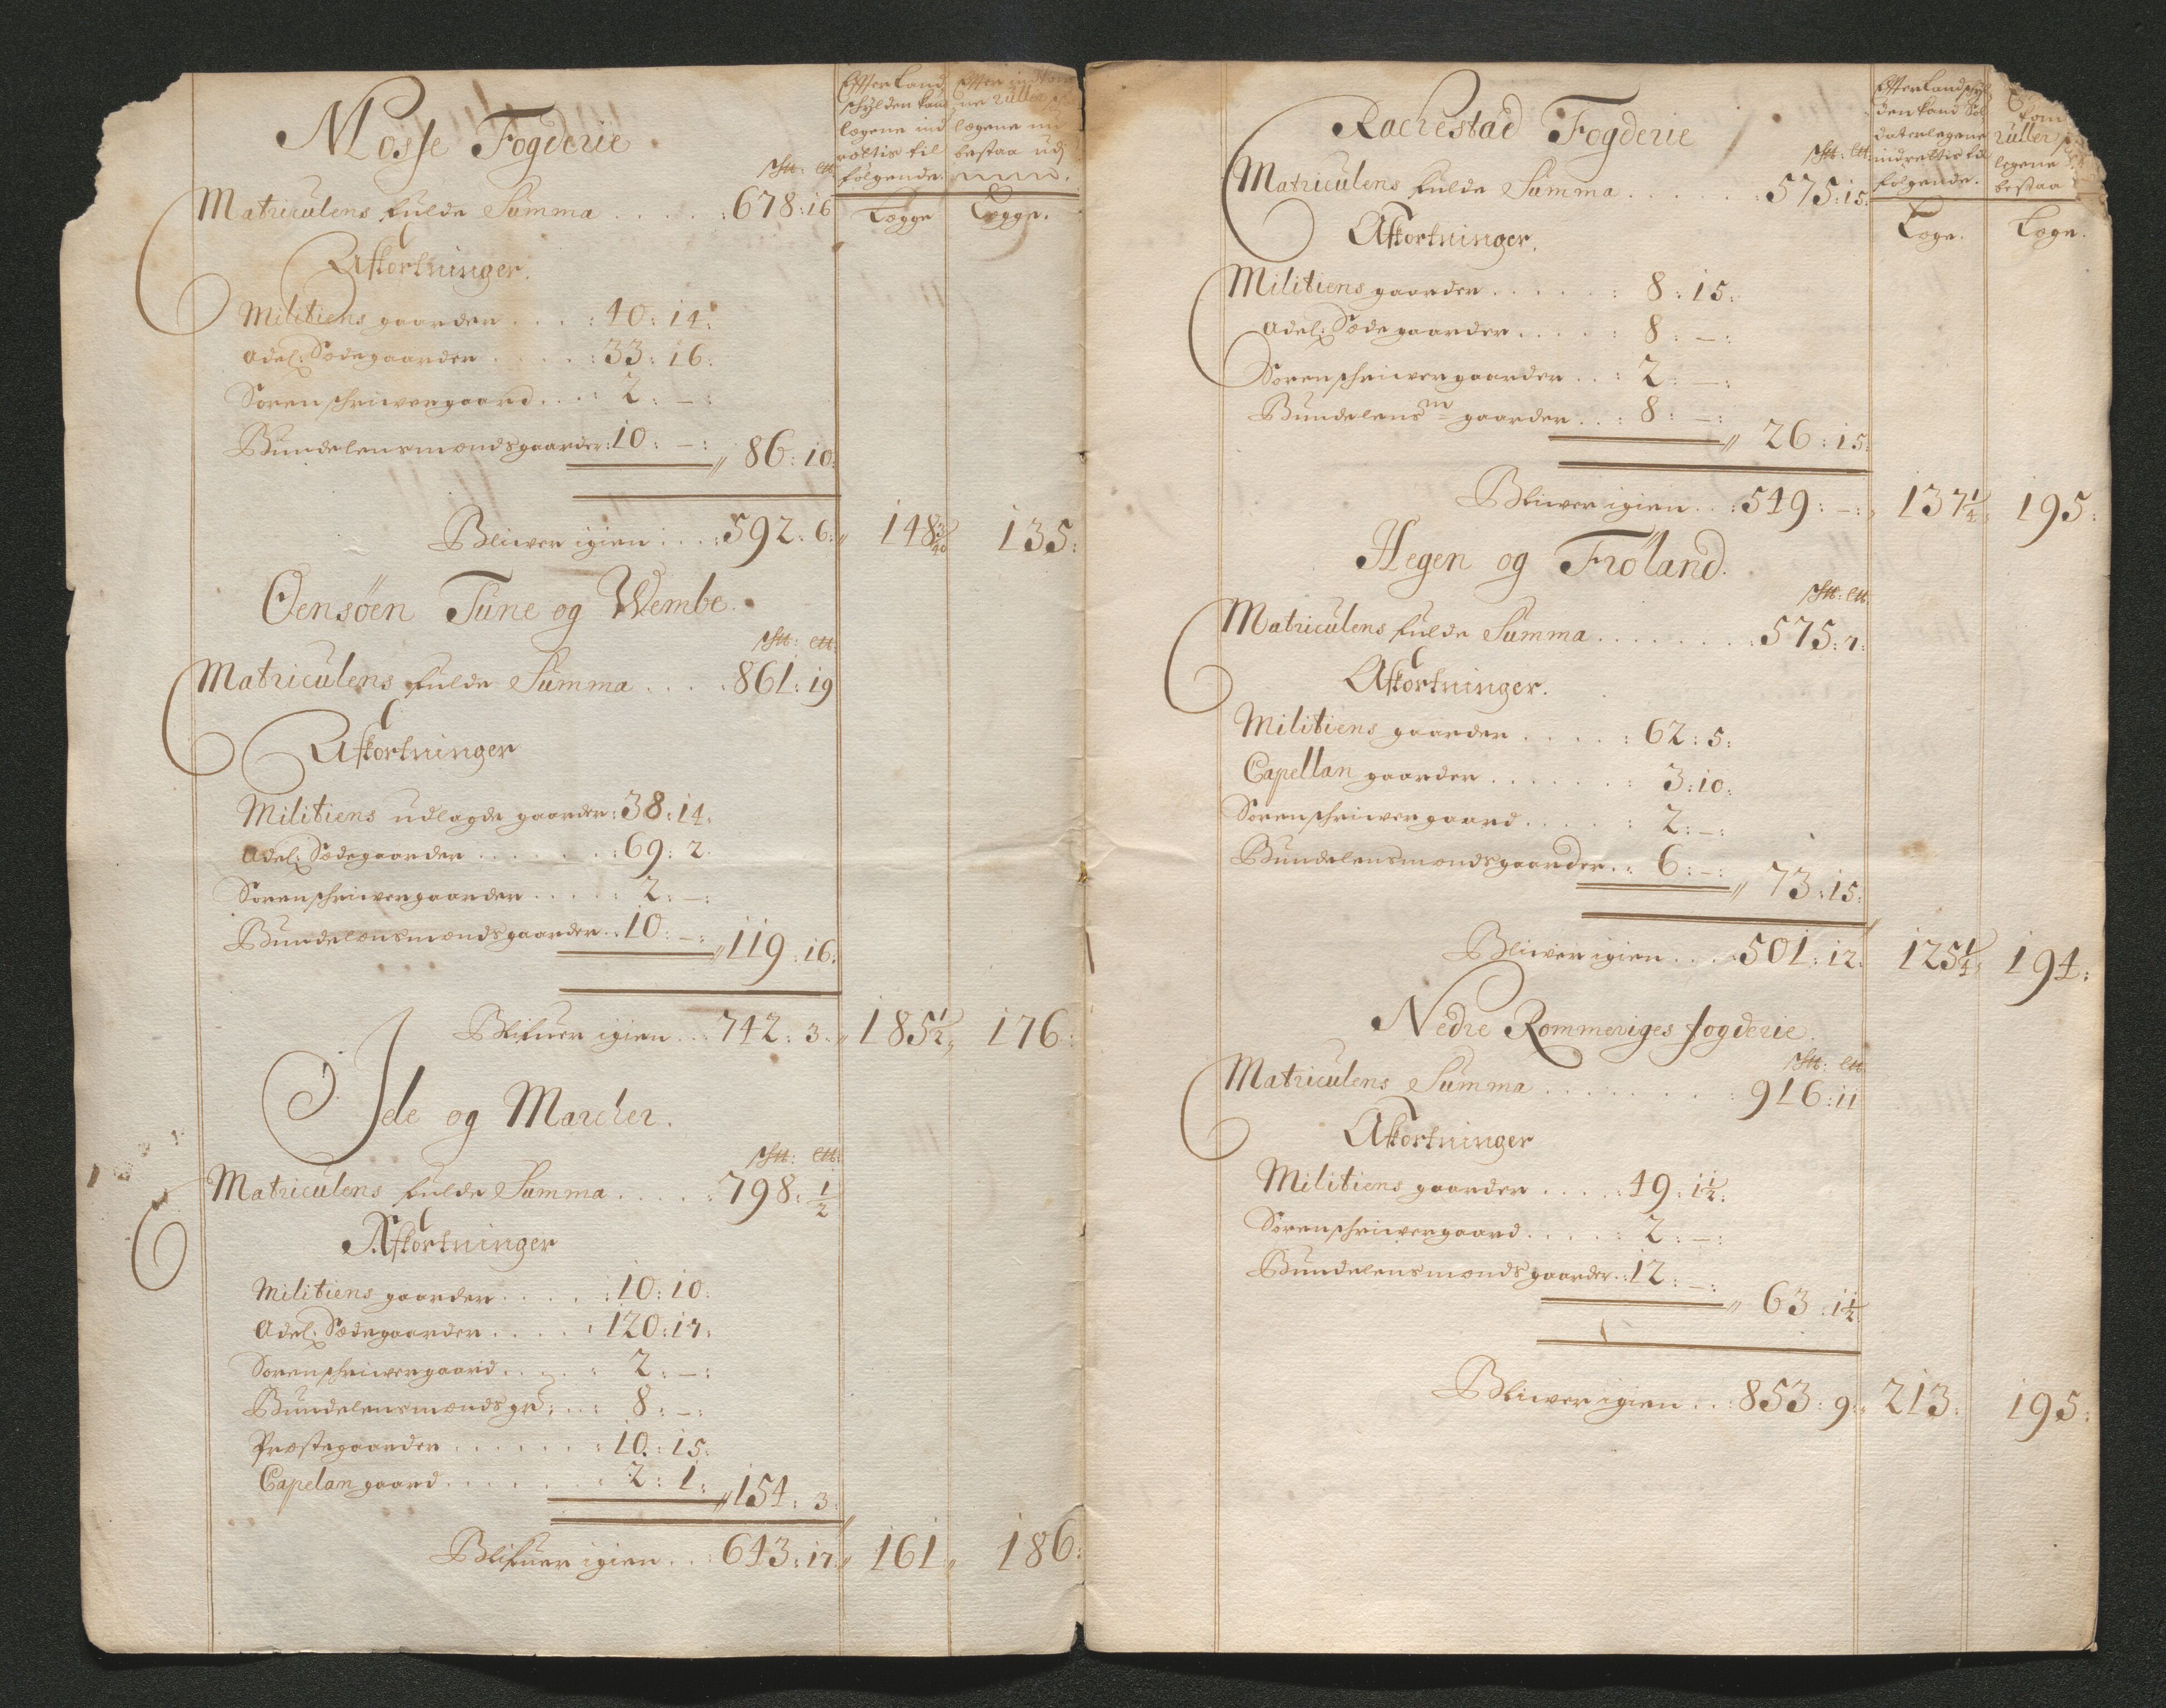 Mosse Fogderie
Efter Land
schylden kand
legene ind
rettis til
følgende.
Efter
ne ruller
legene nu
bestaa udj
Legge
Legge.
s℔: l℔
Matriculens fulde Summa . . . . . : 678 : 16
Afkortninger.
Militiens gaarder . . . . : 40 : 14 :
Adel: Sædegaarder . . . . . : 33 : 16 :
Sorenschriwergaard . . . : 2 : – :
Bundelensmandsgaarder : 10 : – : 〃 86 : 10 :
Bliwer igien . . . : 592 : 6 : 〃 148 3/40 135 :
Oensöen Tune og Wembe.
s℔: l℔:
Matriculens fulde Summa . . . . : 861 : 19
Afkortninger
Militiens udlagde gaarder : 38 : 14 :
Adel: Sædegaarder . . . . . . : 69 : 2 .
Sorenschriwergaarder . . . . . : 2 : – :
Bundelensmandsgaarder . : 10 : – : 〃 119 : 16 :
Blifuer igien . . : 742 : 3 . 〃 185 1/2 〃 176 :
Ide og Marcker.
s℔: l℔:
Matriculens fulde Summa . . . . . : 798 : 1/2
Afkortninger
Militiens gaarder . . . . . : 10 : 10 :
Adel: Sædegaarder . . . . : 120 : 17 :
Sorenschriwergaard . . . . : 2 : – :
Bundelensmands gr: . . : 8 : – :
Præstegaarder . . . . . . : 10 : 15 :
Capelan gaard . . . . . . : 2 : 1 : 〃 154 : 3 :
Blifuer igien . . : 643 : 17 : 〃 161 〃 186 :
Rachestad Fogderie
Efter Landschyl
den kand Sol
daterlegene
indrettis til
følgende.
ruller
legene
bestaa
Lege.
Lege.
s℔: l℔:
Matriculens fulde Summa . . . . . . : 575 : 15 :
Afkortninger.
Militiens gaarder . . . . . . : 8 : 15 :
Adel: Sædegaarder . . . . . : 8 : – :
Sorenschriwergaarder . . : 2 : – :
Bundelens m gaarder . . : 8 : – : 〃 26 : 15 :
Bliwer igien . . : 549 : – : 〃 137 1/4 〃 195 :
Hegen og Fröland.
s℔: l℔:
Matriculens fulde Summa . . . . . . . . : 575 : 7 :
Afkortninger.
Militiens gaarder . . . . . : 62 : 5 :
Capellan gaarder . . . . . . . : 3 : 10 :
Sorenschriwergaard . . . . . : 2 : – :
Bundelensmandsgaarder . : 6 : – : 〃 73 : 15 :
Bliwer igien . . . : 501 : 12 : 125 1/4 〃 194 :
Nedre Rommeriges fogderie.
s℔: l℔
Matriculens Summa . . . . . . . . : 916 : 11
Afkortninger
Militiens gaarder . . . . : 49 : 1 1/2 :
Sorenschriwergaard . . . . . : 2 : – :
Bundelensmandsgaarder . : 12 : – : 〃 63 : 1 1/2
Bliwer igien . . : 853 : 9 : 〃 213 : 195 :